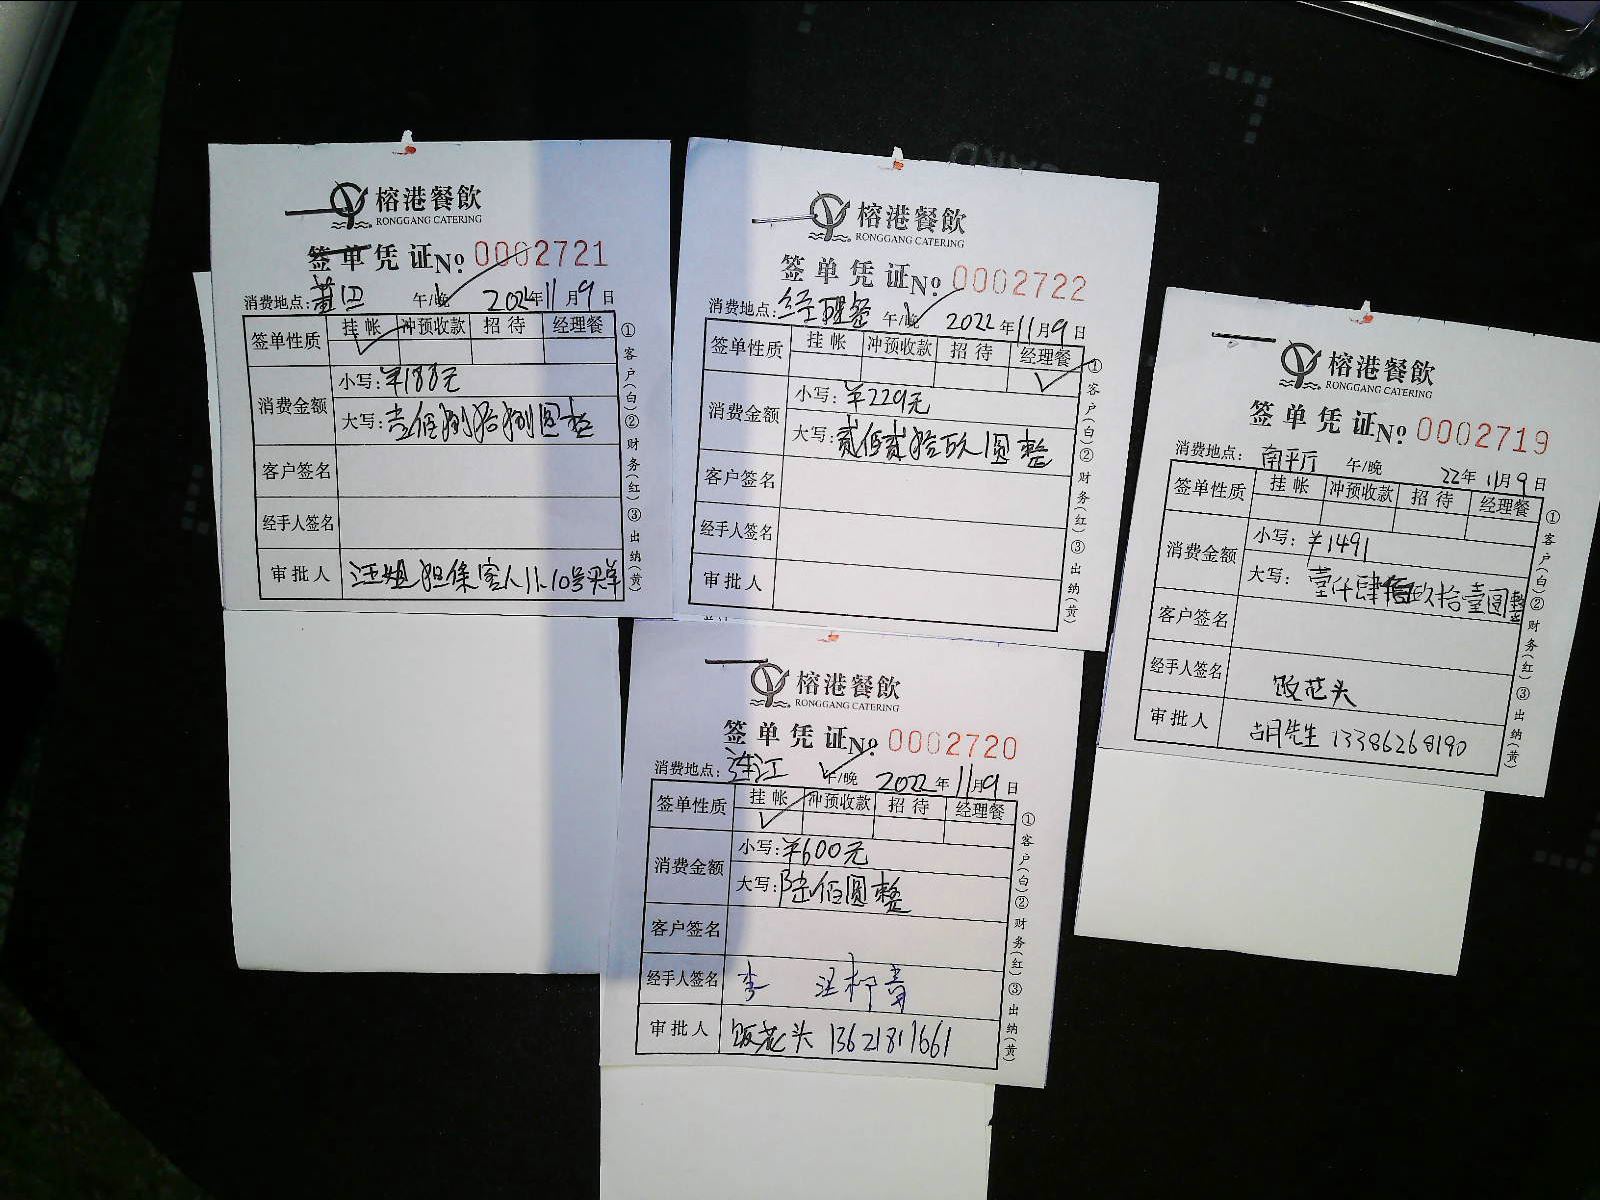 榕港餐飲
RONGGANG CATERING
签单凭证 No. 0002721
消费地点: 莆田 午/晚 2022年11月9日
签单性质 挂帐 冲预收款 招待 经理餐
消费金额 小写: ¥188元
大写: 壹佰捌拾捌圆整
客户签名
经手人签名
审批人 汪姐担保客人11.10号买单
①客户(白)②财务(红)③出纳(黄)
榕港餐飲
RONGGANG CATERING
签单凭证 No. 0002722
消费地点: 经理餐 午/晚 2022年11月9日
签单性质 挂帐 冲预收款 招待 经理餐
消费金额 小写: ¥229元
大写: 贰佰贰拾玖圆整
客户签名
经手人签名
审批人
①客户(白)②财务(红)③出纳(黄)
榕港餐飲
RONGGANG CATERING
签单凭证 No. 0002719
消费地点: 南平厅 午/晚 22年11月9日
签单性质 挂帐 冲预收款 招待 经理餐
消费金额 小写: ¥1491
大写: 壹仟肆佰玖拾壹圆整
客户签名
经手人签名 饭范头
审批人 胡先生 13386268190
①客户(白)②财务(红)③出纳(黄)
榕港餐飲
RONGGANG CATERING
签单凭证 No. 0002720
消费地点: 连江 午/晚 2022年11月9日
签单性质 挂帐 冲预收款 招待 经理餐
消费金额 小写: ¥600元
大写: 陆佰圆整
客户签名
经手人签名 李
审批人 13621811661
①客户(白)②财务(红)③出纳(黄)